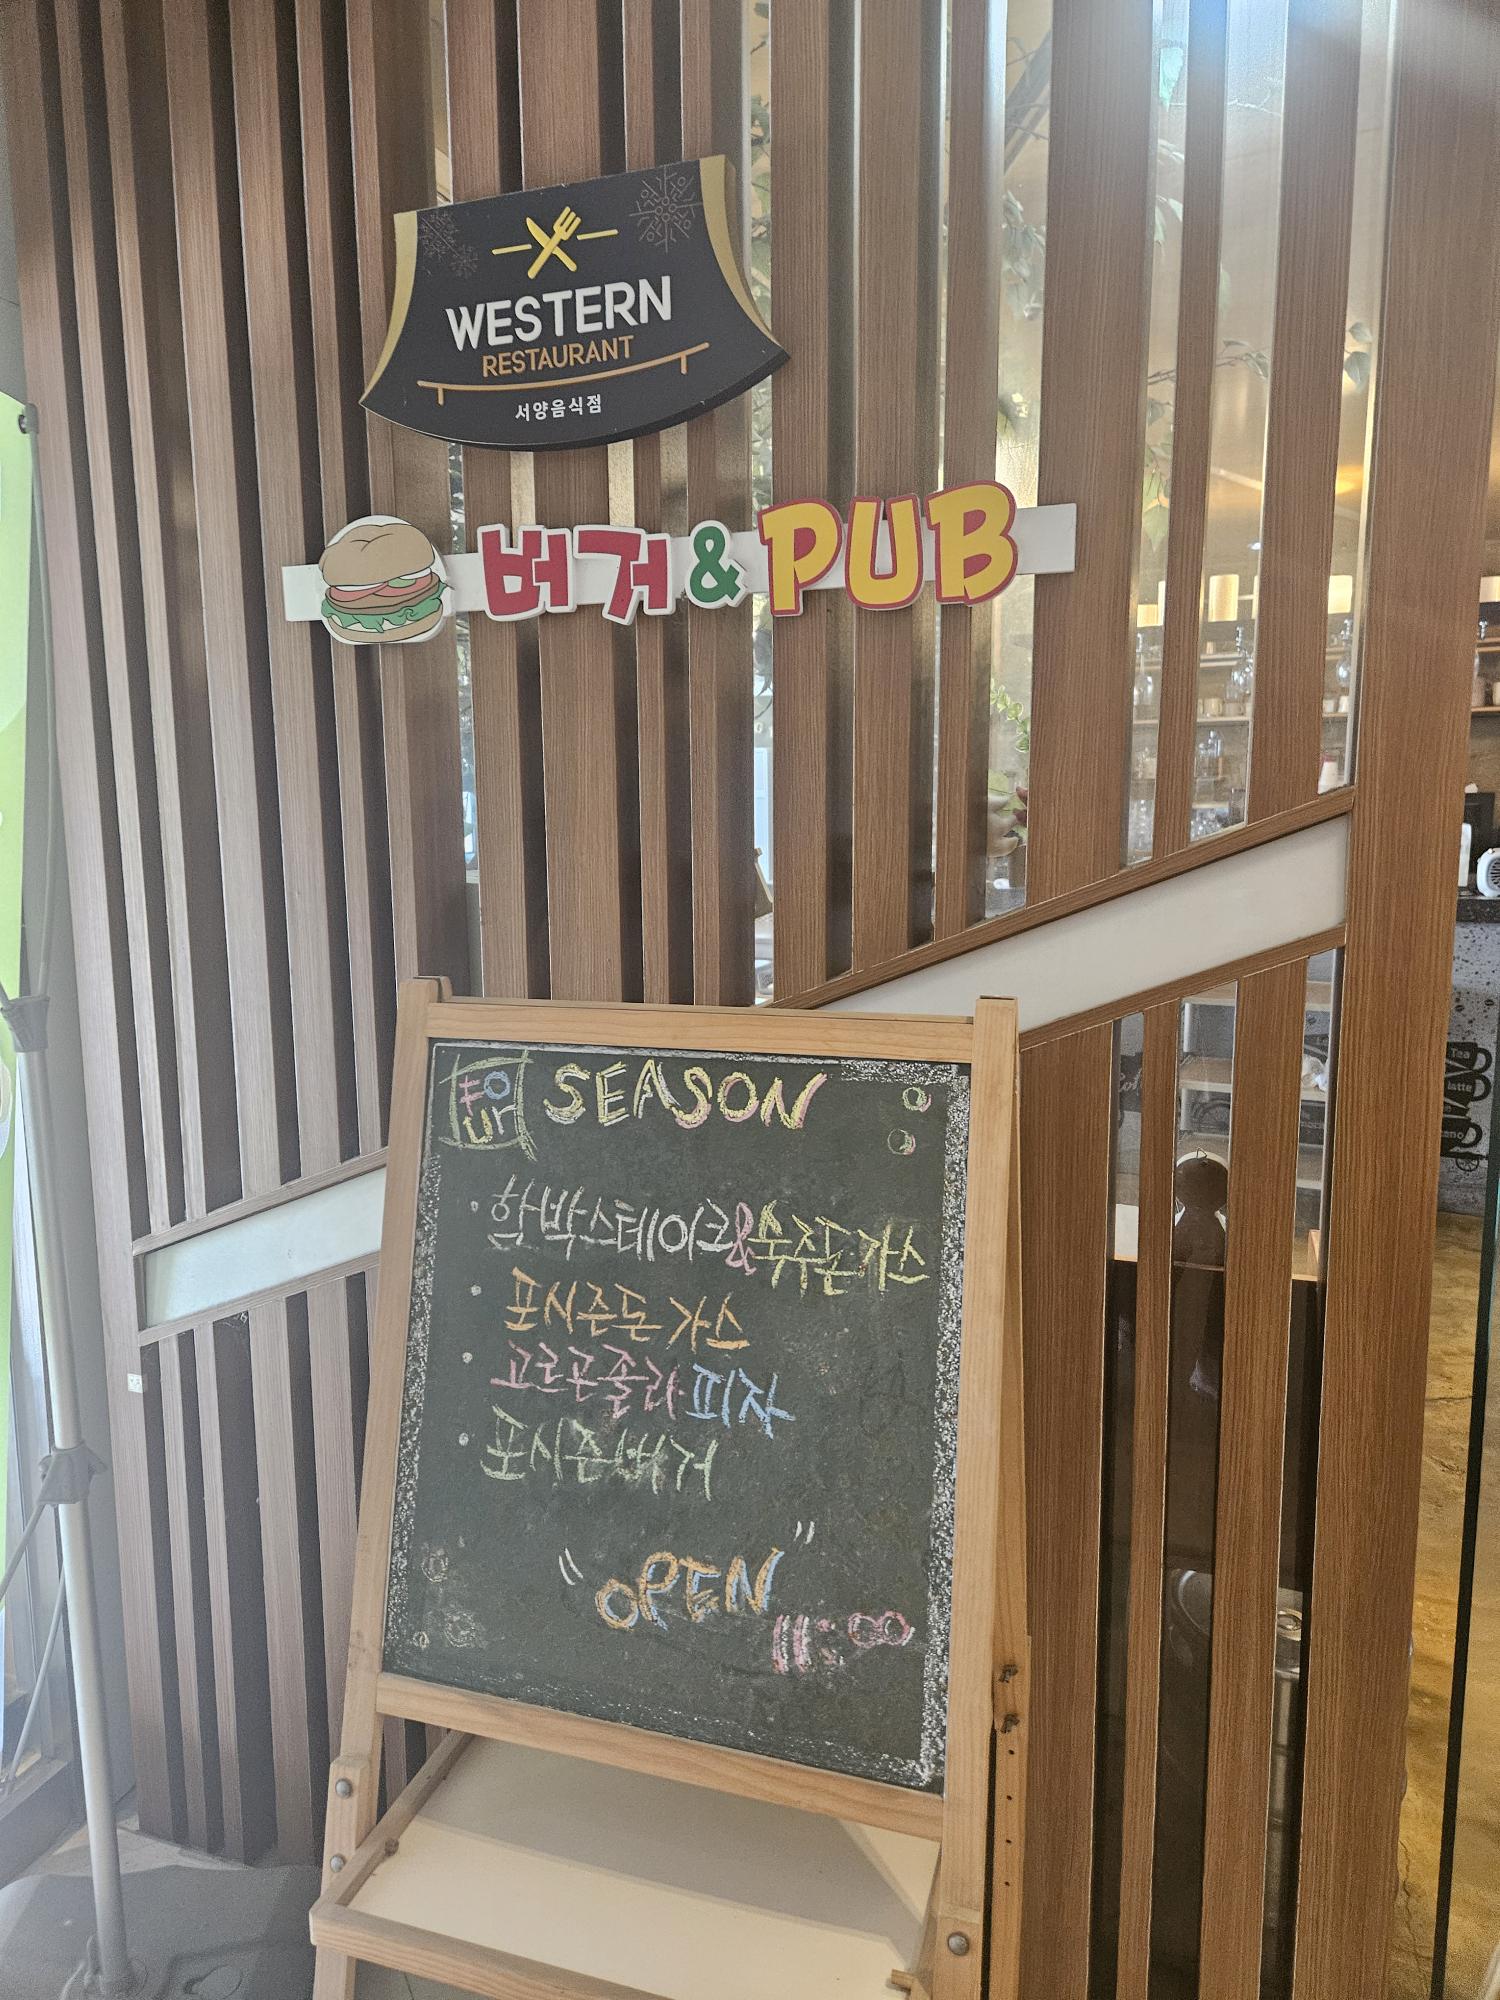 WESTERN
RESTAURANT
서양음식점
버거&PUB
FOUR SEASON
· 함박스테이크&숙주돈가스
· 포시즌돈가스
· 고르곤졸라피자
· 포시즌버거
"OPEN"
11:00
Tea
latte